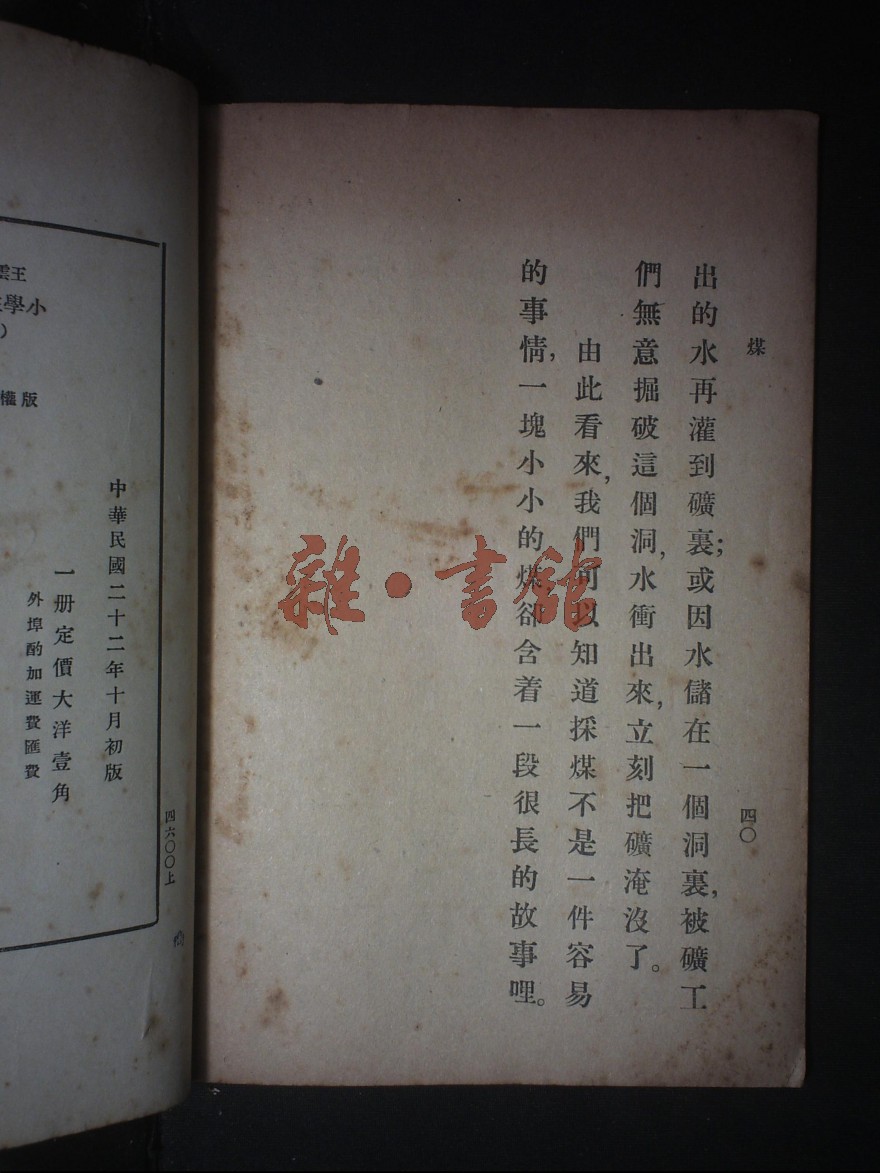 煤
四〇
出的水再灌到礦裏；或因水儲在一個洞裏，被礦工
們無意掘破這個洞，水衝出來，立刻把礦淹沒了。
由此看來，我們可以知道採煤不是一件容易
的事情，一塊小小的煤卻含着一段很長的故事哩。
雜·書館
四六〇〇上
中華民國二十二年十月初版
一册定價大洋壹角
外埠酌加運費匯費
王雲
小學
版權